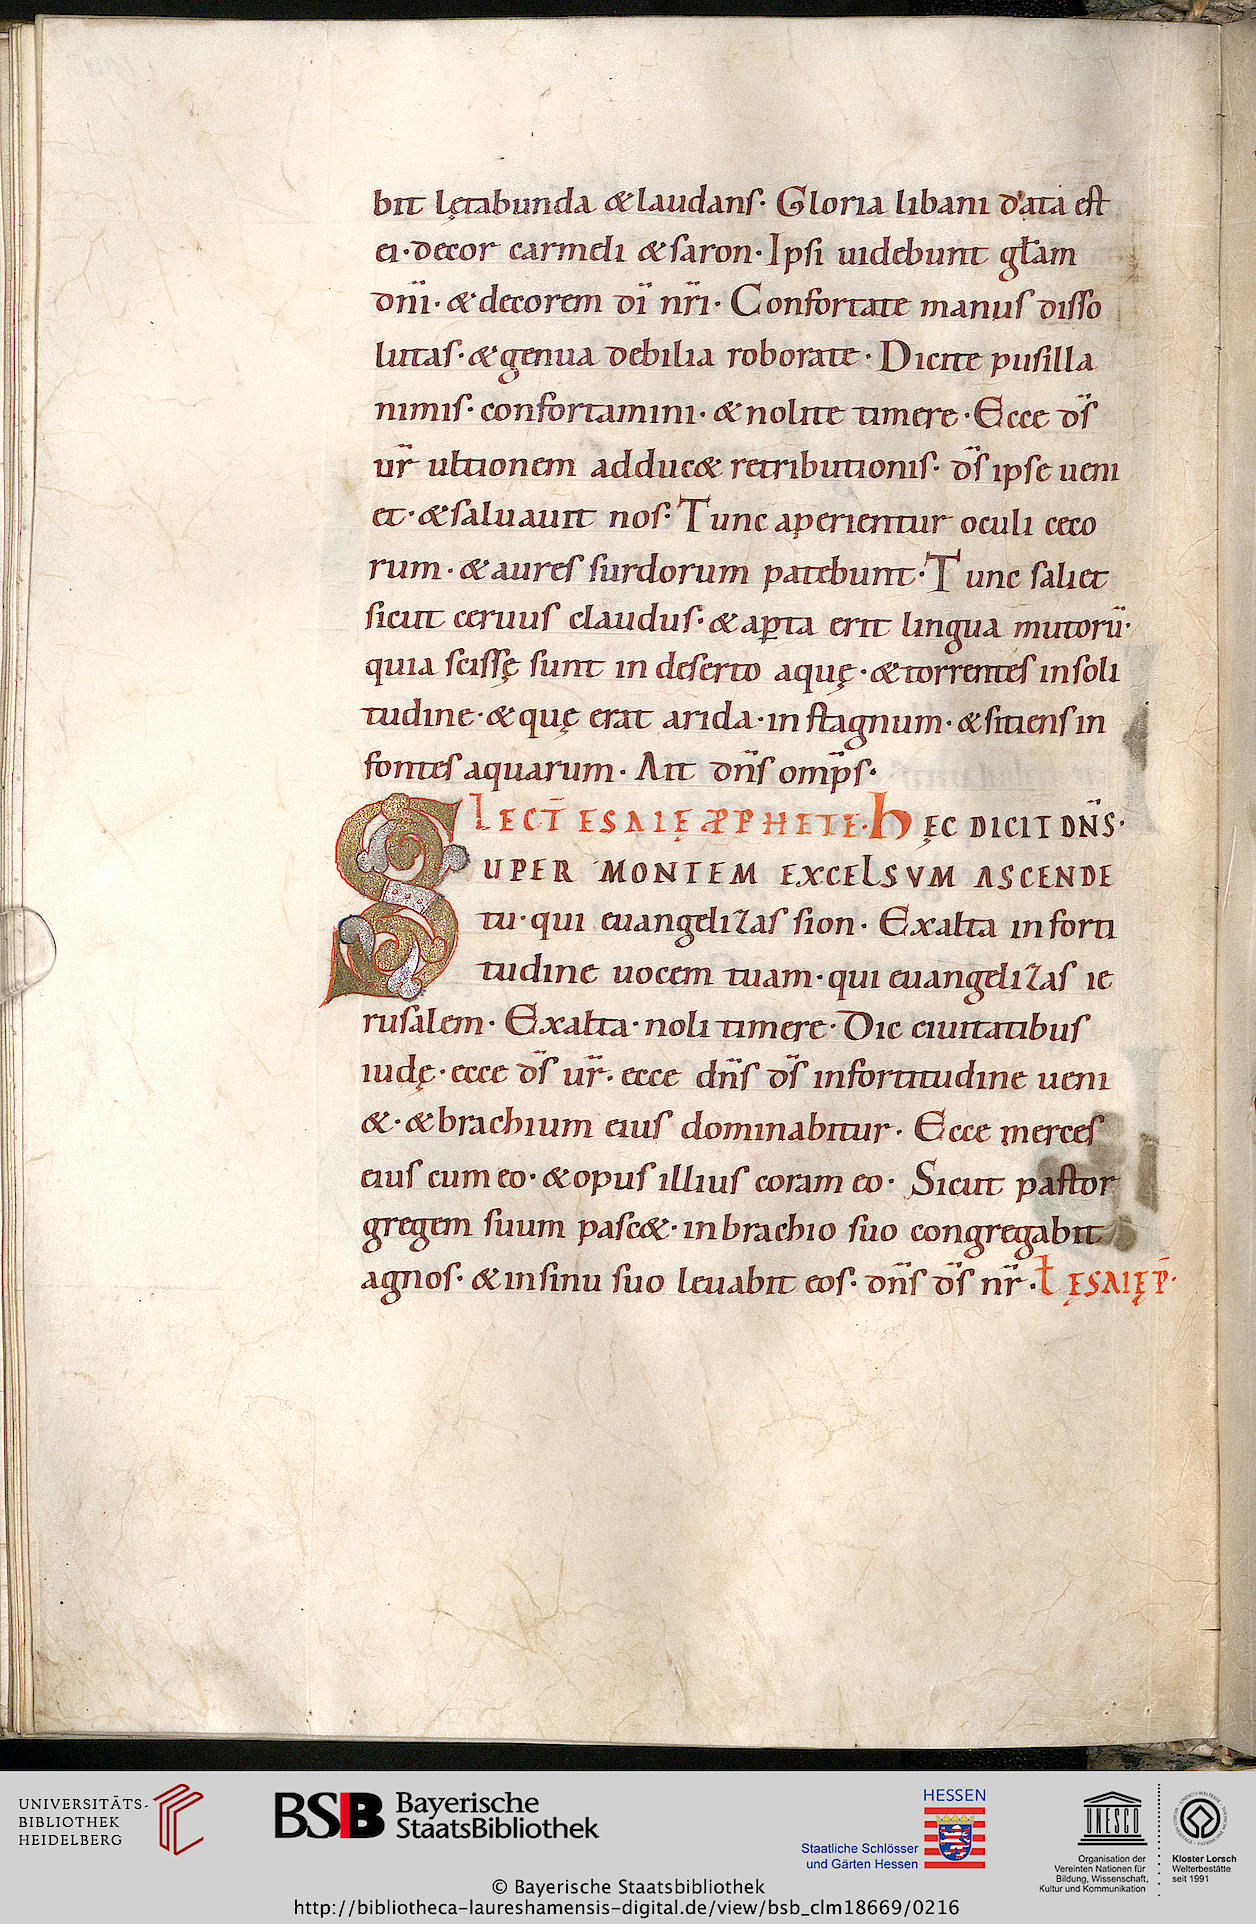 bit lętabunda & laudans· Gloria libani data est
ei· decor carmeli & saron· Ipsi uidebunt głam
dn̄i· & decorem dī nr̄i· Confortate manus disso
lutas· & genua debilia roborate· Dicite pusilla
nimis· confortamini· & nolite timere· Ecce ds̄
ur̄ ultionem adduc& retributionis· ds̄ ipse ueni
et· & saluauit nos· Tunc aperientur oculi ceco
rum· & aures surdorum patebunt· Tunc saliet
sicut ceruus claudus· & aꝑta erit lingua mutorū·
quia scissę sunt in deserto aquę· & torrentes in soli
tudine· & quę erat arida· in stagnum· & sitiens in
fontes aquarum· Ait dn̄s omp̄s·
LECT̄ ESAIĘ PPHETE· hĘC DICIT DN̄S·
SUPER MONTEM EXCELSVM ASCENDE
tu· qui euangelizas sion· Exalta in forti
tudine uocem tuam· qui euangelizas ie
rusalem· Exalta· noli timere· Dic ciuitatibus
iudę· ecce ds̄ ur̄· ecce dn̄s ds̄ in fortitudine ueni
&· & brachium eius dominabitur· Ecce merces
eius cum eo· & opus illius coram eo· Sicut pastor
gregem suum pasc&· in brachio suo congregabit
agnos· & in sinu suo leuabit eos· dn̄s ds̄ nr̄· Ł ĘSAIĘ P̄·
UNIVERSITÄTS-
BIBLIOTHEK
HEIDELBERG
BSB Bayerische
StaatsBibliothek
HESSEN
Staatliche Schlösser
und Gärten Hessen
UNESCO
Organisation der
Vereinten Nationen für
Bildung, Wissenschaft,
Kultur und Kommunikation
Kloster Lorsch
Welterbestätte
seit 1991
© Bayerische Staatsbibliothek
http://bibliotheca-laureshamensis-digital.de/view/bsb_clm18669/0216